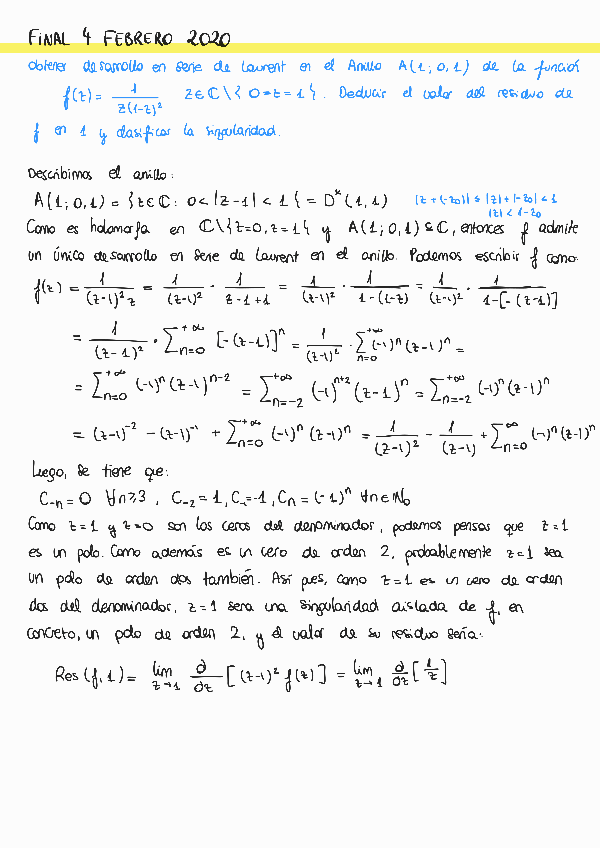 FINAL 4 FEBRERO 2020
Obtener desarrollo en serie de Laurent en el Anillo A(1;0,1) de la función
f(z) = 1/(z(1-z)²) z∈ℂ\{0≠z=1}. Deducir el valor del residuo de
f en 1 y clasificar la singularidad.
Describimos el anillo:
A(1;0,1) = {z∈ℂ: 0<|z-1|<1} = D*(1,1) |z+(-z₀)| ≤ |z|+|-z₀| < 1
|z| < 1-z₀
Como es holomorfa en ℂ\{z=0, z=1} y A(1;0,1)⊆ℂ, entonces f admite
un único desarrollo en serie de Laurent en el anillo. Podemos escribir f como:
f(z) = 1/((z-1)²z) = 1/(z-1)² · 1/(z-1+1) = 1/(z-1)² · 1/(1-(1-z)) = 1/(z-1)² · 1/(1-[-(z-1)])
= 1/(z-1)² · ∑_{n=0}^{+∞} [-(z-1)]ⁿ = 1/(z-1)² · ∑_{n=0}^{+∞} (-1)ⁿ(z-1)ⁿ =
= ∑_{n=0}^{+∞} (-1)ⁿ(z-1)ⁿ⁻² = ∑_{n=-2}^{+∞} (-1)ⁿ⁺²(z-1)ⁿ = ∑_{n=-2}^{+∞} (-1)ⁿ(z-1)ⁿ
= (z-1)⁻² - (z-1)⁻¹ + ∑_{n=0}^{+∞} (-1)ⁿ(z-1)ⁿ = 1/(z-1)² - 1/(z-1) + ∑_{n=0}^{∞} (-1)ⁿ(z-1)ⁿ
Luego, se tiene que:
C₋ₙ = 0 ∀n≥3, C₋₂ = 1, C₋ = -1, Cₙ = (-1)ⁿ ∀n∈ℕ₀
Como z=1 y z=0 son los ceros del denominador, podemos pensar que z=1
es un polo. Como además es un cero de orden 2, probablemente z=1 sea
un polo de orden dos también. Así pues, como z=1 es un cero de orden
dos del denominador, z=1 sera una singularidad aislada de f, en
concreto, un polo de orden 2, y el valor de su residuo sería:
Res(f,1) = lim_{z→1} ∂/∂z [(z-1)² f(z)] = lim_{z→1} ∂/∂z [1/z]